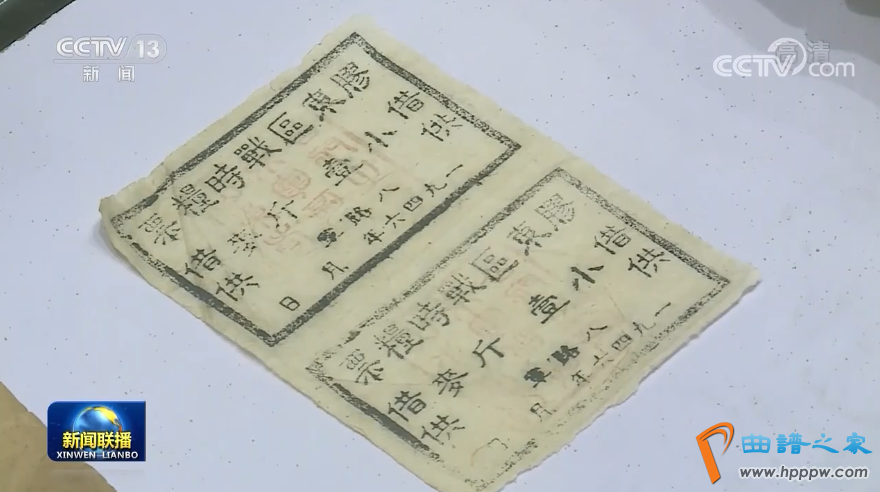 CCTV 13
新闻
高清
CCTV com
膠東區戰時糧票
借供
小壹斤麥
借供
八路軍
一九四六年 月 日
膠東區戰時糧票
借供
小壹斤麥
借供
八路軍
一九四六年 月
新闻联播
XINWEN LIANBO
曲谱之家
www.hppw.com